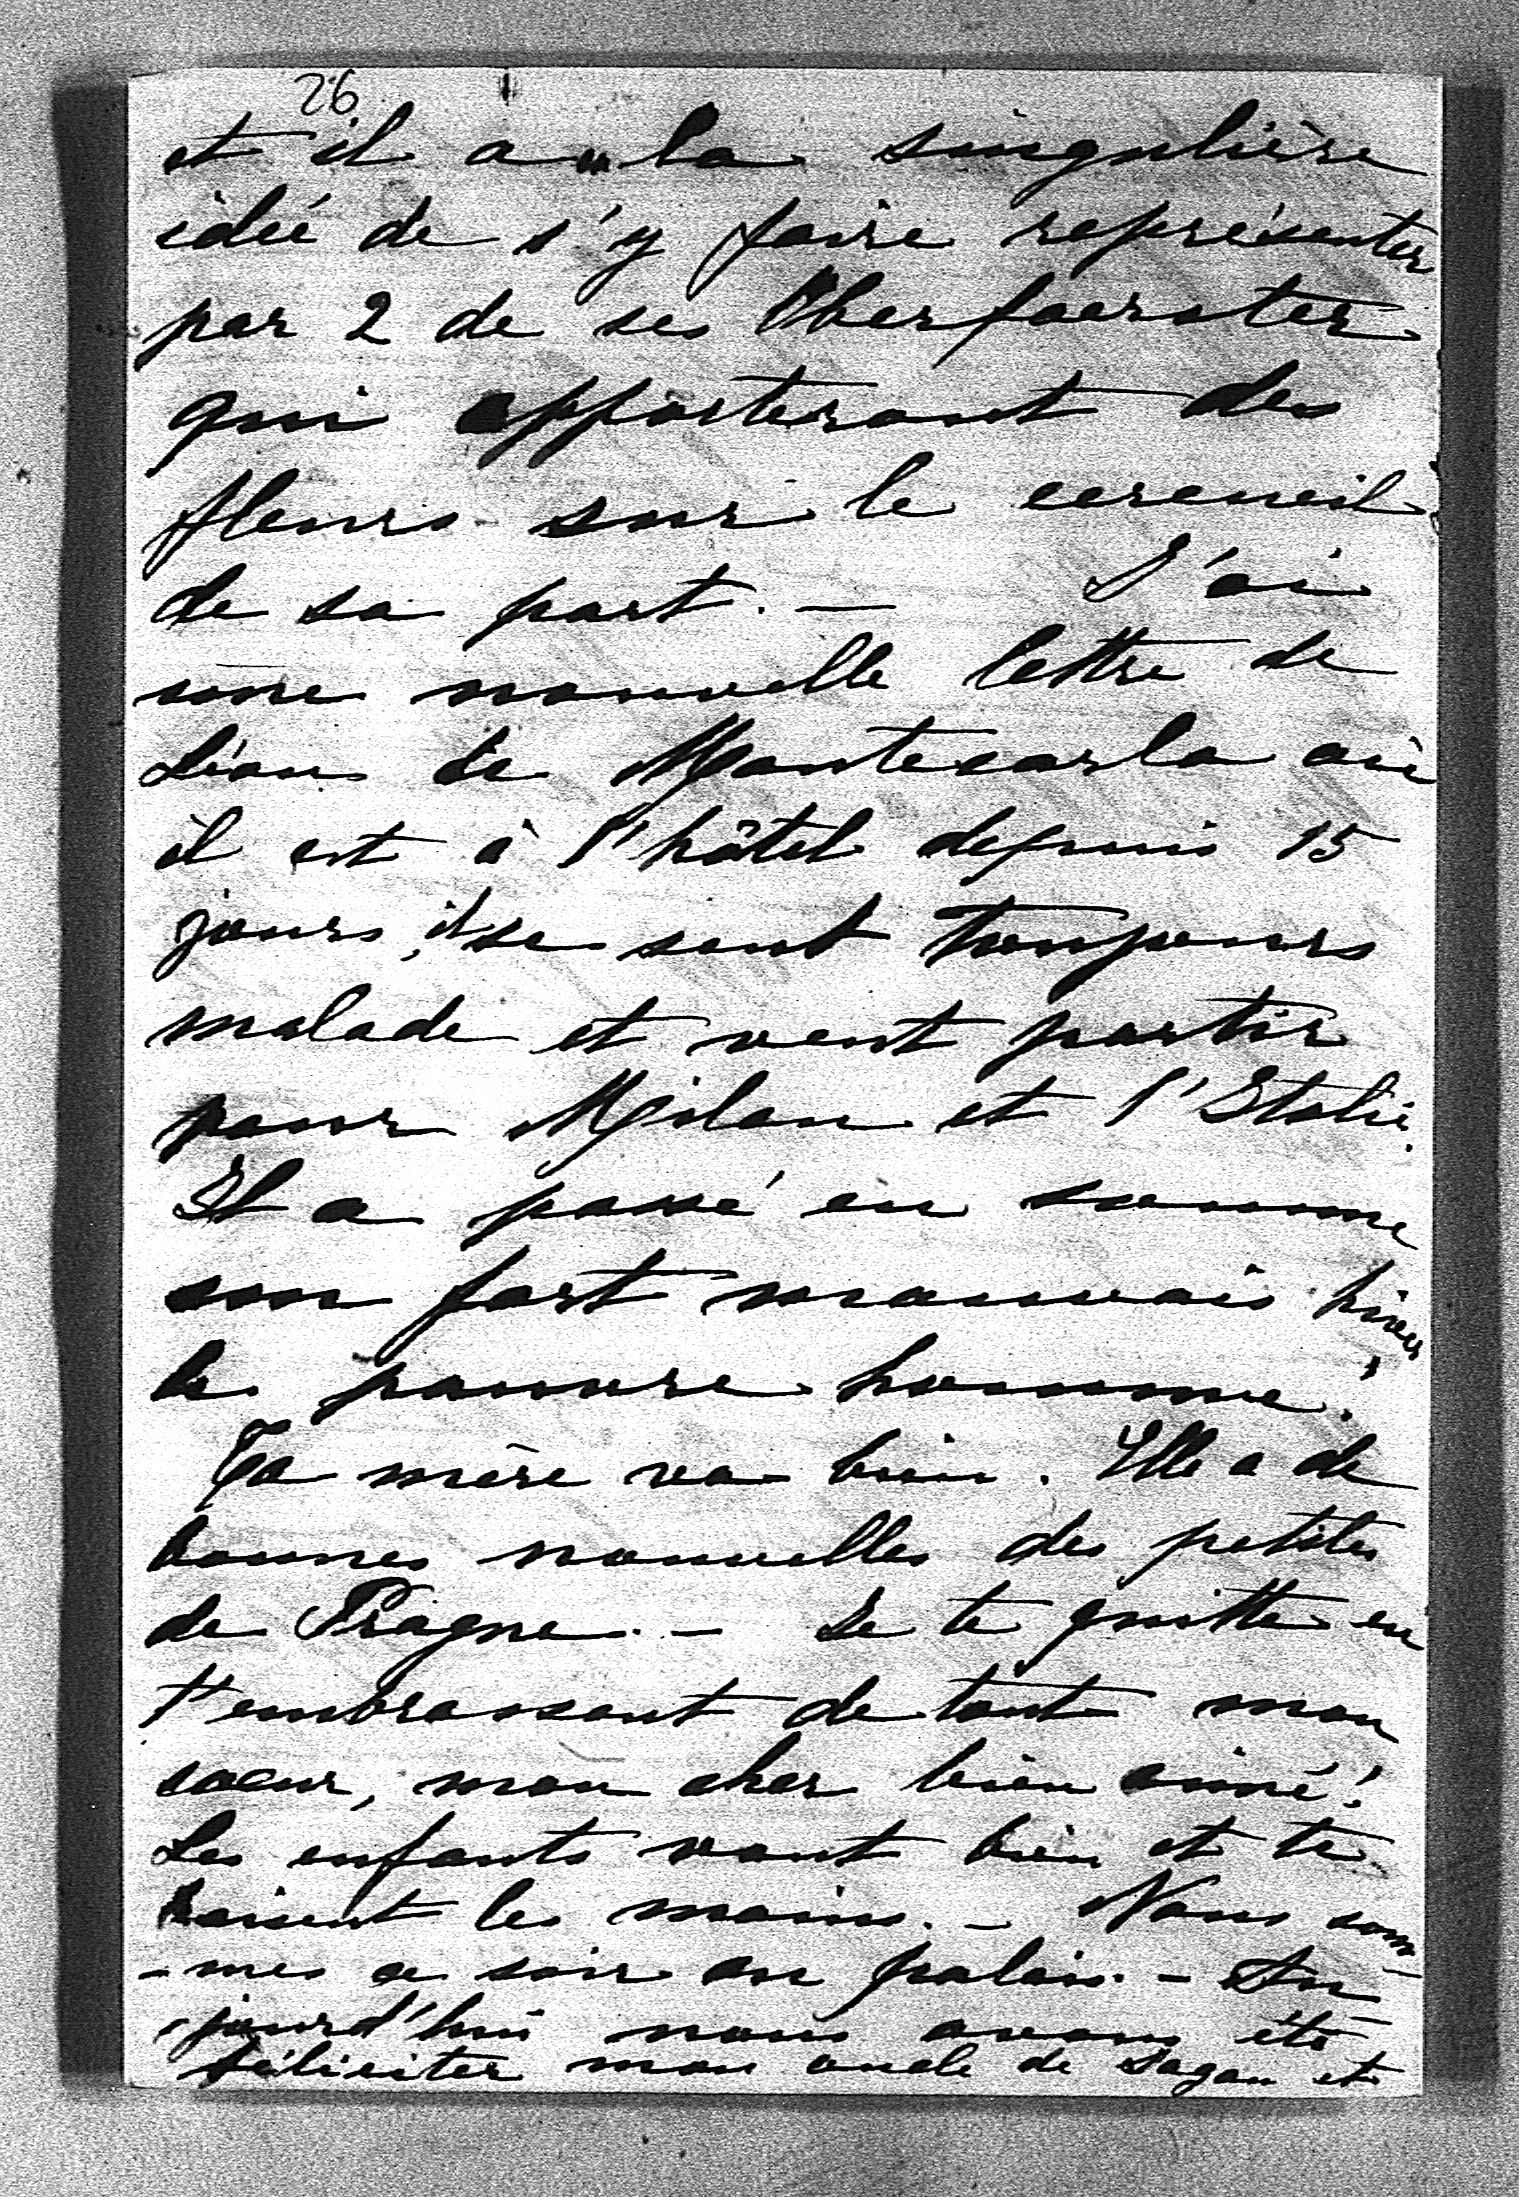 26
et il a " la singulière
idée de s'y faire représenter
par 2 de ses Oberfoerster
qui apporteront des
fleurs sur le cercueil
de sa part. — J'ai
une nouvelle lettre de
Léon de Montecarlo où
il est à l'hôtel depuis 15
jours, il se sent toujours
malade et veut partir
pour Milan et l'Italie.
Il a passé en somme
un fort mauvais hiver
le pauvre homme!
Ta mère va bien. Elle a de
bonnes nouvelles des petites
de Prague. — Je te quitte en
t'embrassant de tout mon
coeur, mon cher bien aimé!
Les enfants vont bien et te
baisent les mains. — Nous som-
-mes ce soir au palais. — Au-
-jourd'hui nous avons été
féliciter mon oncle de Sagan et